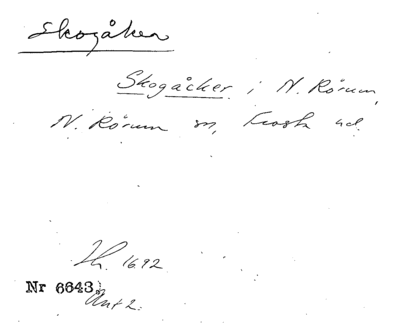 Skogåker
Skogåcker i N. Rörum,
N. Rörum sn, Frosta hd.
Lh. 1692
Nr 6643:
Ant 2.